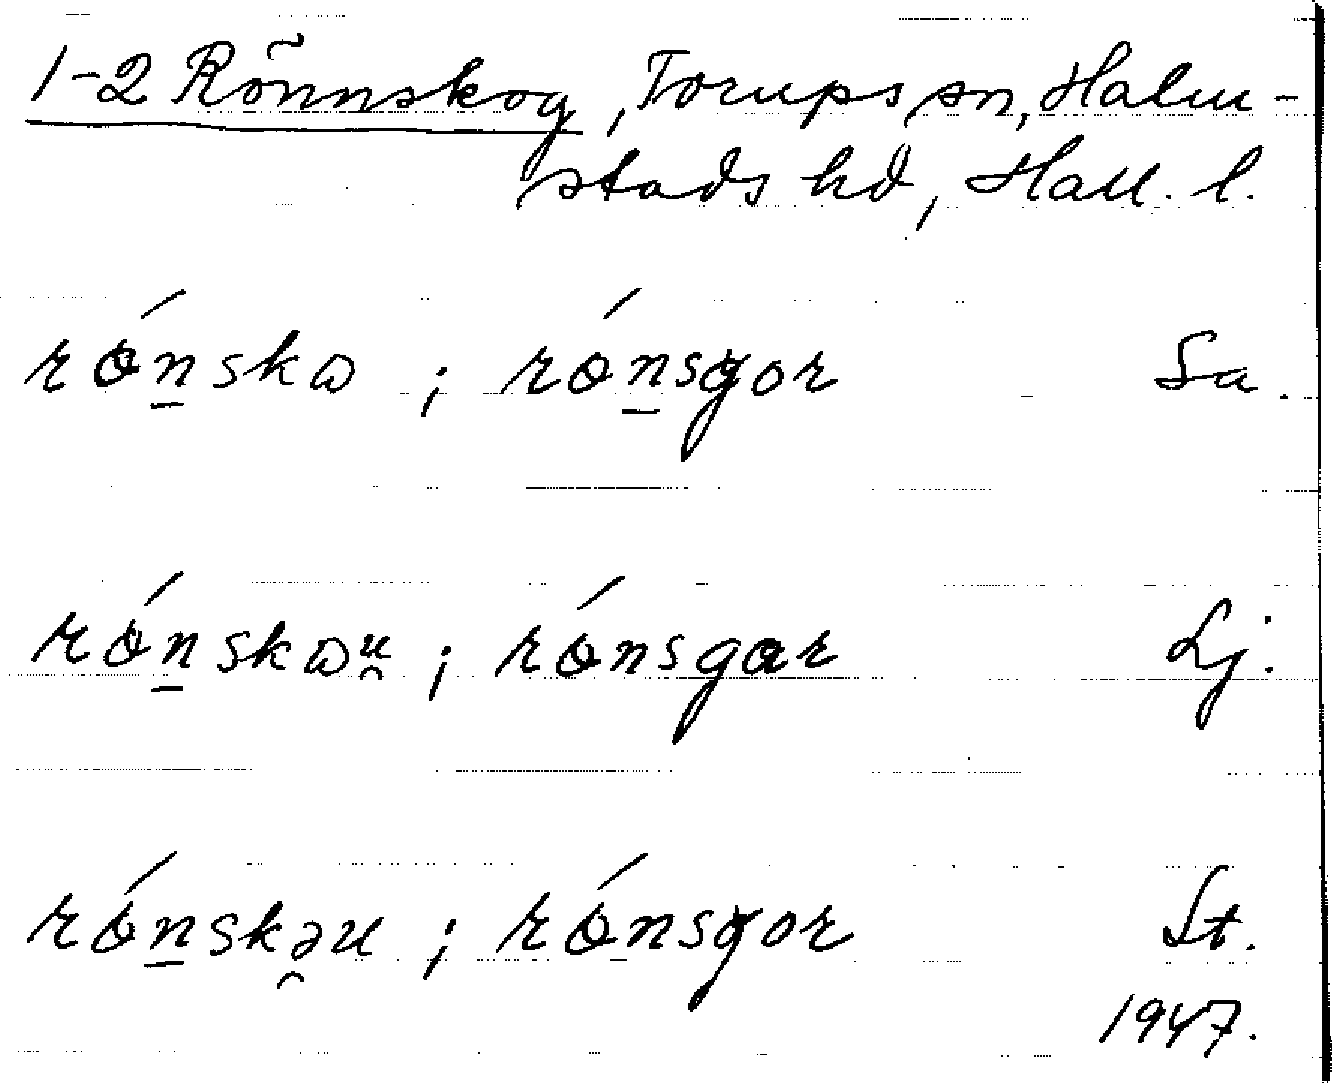 1-2 Rönnskog, Torups sn, Halm-
stads hd, Hall. l.
rǿn̲skɷ ; rǿn̲sgor Sa.
rǿn̲skɷu̯ ; rǿnsgar Lj.
rǿn̲skə̯u ; rǿnsgor St.
1947.